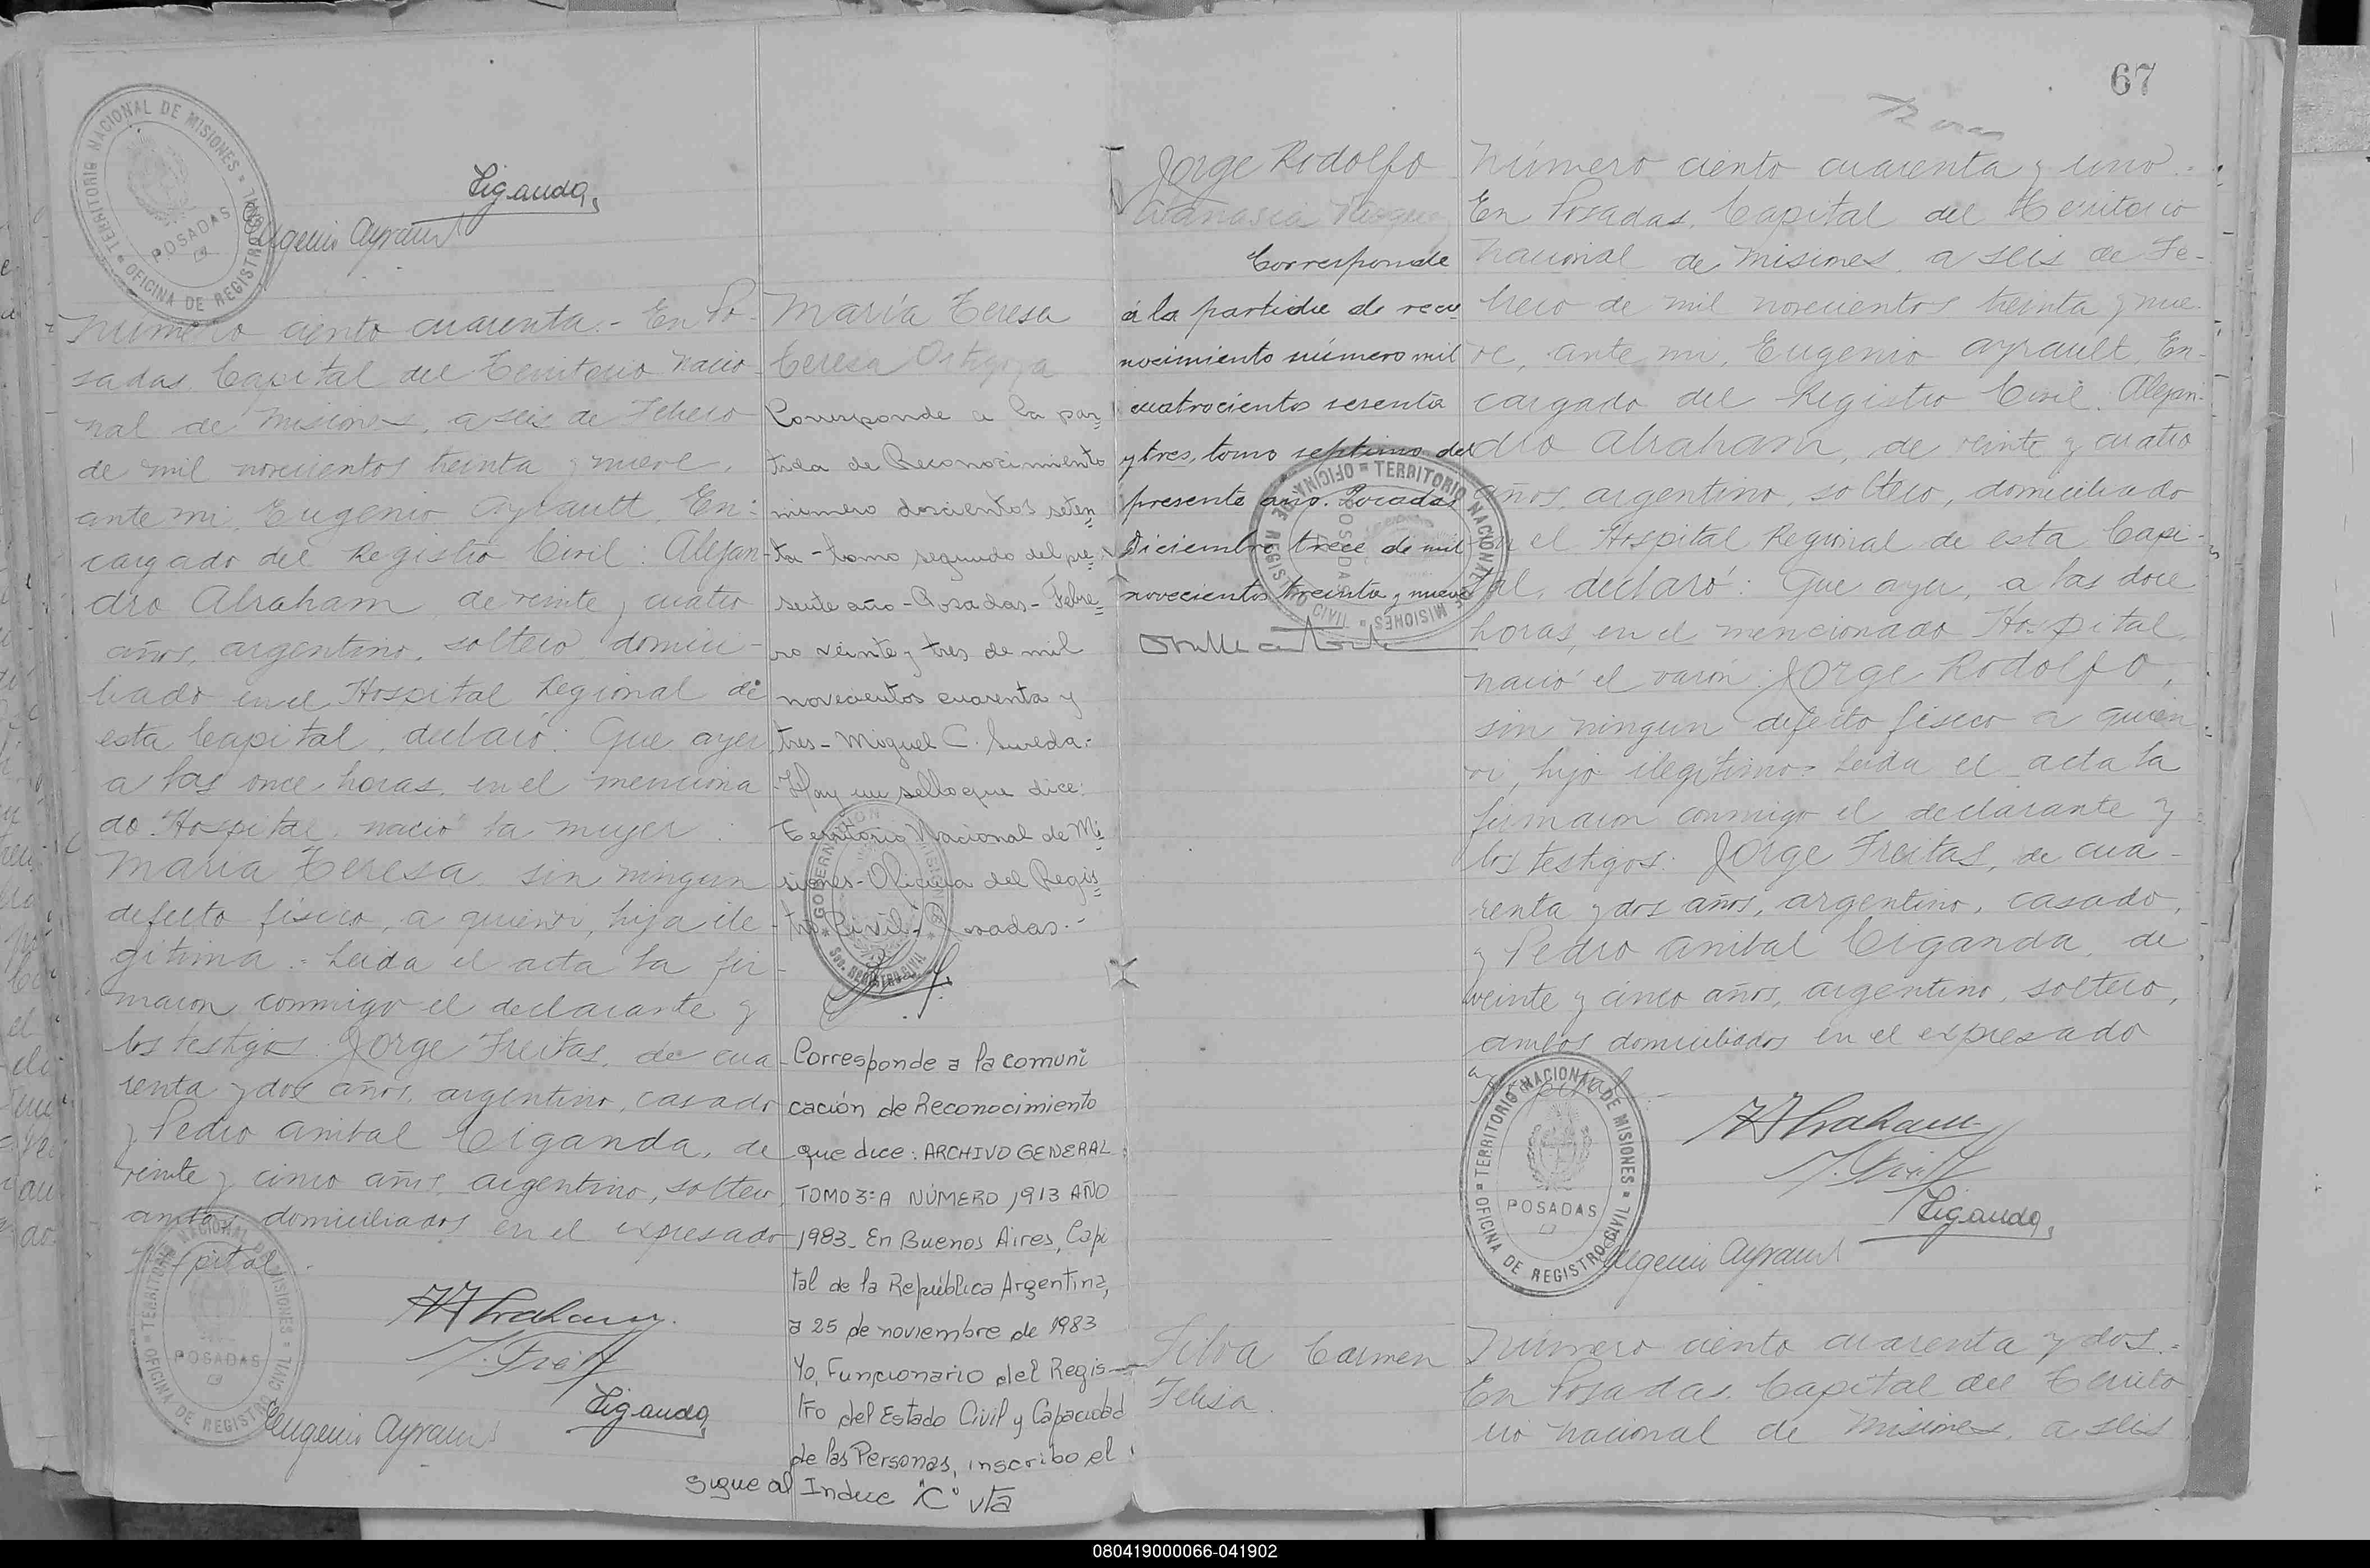 TERRITORIO NACIONAL DE MISIONES
OFICINA DE REGISTRO CIVIL
POSADAS
Ciganda
Eugenio Ayrault
Número ciento cuarenta.- En Po-
sadas, Capital del Territorio Nacio-
nal de Misiones, a seis de Febrero
de mil novecientos treinta y nueve,
ante mi, Eugenio Ayrault, En-
cargado del Registro Civil: Alejan-
dro Abraham, de veinte y cuatro
años, argentino, soltero, domici-
liado en el Hospital Regional de
esta Capital, declaró: Que ayer
a las once horas, en el menciona
do Hospital, nació la mujer:
María Teresa, sin ningun
defecto físico, a quien vi, hija ile-
gitima.- Leida el acta la fir-
maron conmigo el declarante y
los testigos: Jorge Freitas, de cua-
renta y dos años, argentino, casado
y Pedro Anibal Ciganda, de
veinte y cinco años, argentino, soltero,
ambos domiciliados en el expresado
Hospital.-
AAbraham
J. Freitas
Ciganda
Eugenio Ayrault
TERRITORIO NACIONAL DE MISIONES
OFICINA DE REGISTRO CIVIL
POSADAS
María Teresa
Teresa Ortigoza
Corresponde a la par-
tida de Reconocimiento
número doscientos seten-
ta - tomo segundo del pre-
sente año - Posadas - Febre-
ro veinte y tres de mil
novecientos cuarenta y
tres - Miguel C.
Hay un sello que dice:
Territorio Nacional de Mi-
siones - Oficina del Regis-
tro Civil - Posadas.-
GOBERNACION
MISIONES
Sec. REGISTRO CIVIL
Corresponde a la comuni
cación de Reconocimiento
que dice: ARCHIVO GENERAL
TOMO 3º A NÚMERO 1913 AÑO
1983_ En Buenos Aires, Capi
tal de la República Argentina,
a 25 de noviembre de 1983
Yo, Funcionario del Regis-
tro del Estado Civil y Capacidad
de las Personas, inscribo el
Sigue al Indice "C" vta
67
Jorge Rodolfo
Atanasia
Corresponde
á la partida de reco
nocimiento número mil
cuatrocientos sesenta
y tres, tomo septimo del
presente año. Posadas
Diciembre trece de mil
novecientos treinta y nueve
TERRITORIO NACIONAL DE MISIONES
OFICINA DE REGISTRO CIVIL
POSADAS
Número ciento cuarenta y uno.-
En Posadas, Capital del Territorio
Nacional de Misiones, a seis de Fe-
brero de mil novecientos treinta y nue-
ve, ante mi, Eugenio Ayrault, En-
cargado del Registro Civil: Alejan-
dro Abraham, de veinte y cuatro
años, argentino, soltero, domiciliado
en el Hospital Regional de esta Capi-
tal, declaró: Que ayer, a las doce
horas, en el mencionado Hospital,
nació el varón: Jorge Rodolfo,
sin ningun defecto físico a quien
vi, hijo ilegitimo.- Leida el acta la
firmaron conmigo el declarante y
los testigos: Jorge Freitas, de cua-
renta y dos años, argentino, casado,
y Pedro Anibal Ciganda, de
veinte y cinco años, argentino, soltero,
ambos domiciliados en el expresado
Hospital.-
AAbraham
J. Freitas
Ciganda
Eugenio Ayrault
TERRITORIO NACIONAL DE MISIONES
OFICINA DE REGISTRO CIVIL
POSADAS
Silva Carmen
Felisa
Número ciento cuarenta y dos.-
En Posadas, Capital del Territo
rio Nacional de Misiones, a seis
080419000066-041902